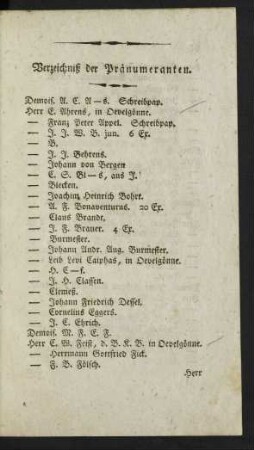 Verzeichniß der Pränumeranten.
Demois. A. C. A—s. Schreibpap.
Herr E. Ahrens, in Oevelgönne.
— Franz Peter Appel. Schreibpap.
— J. J. W. B. jun. 6 Ex.
— B.
— J. J. Behrens.
— Johann von Bergen
— C. S. Bl—s, aus J.
— Biecken.
— Joachim Heinrich Bohrt.
— A. F. Bonaventurus. 20 Ex.
— Claus Brandt.
— J. F. Brauer. 4 Ex.
— Burmester.
— Johann Andr. Aug. Burmester.
— Leib Levi Caiphas, in Oevelgönne.
— H. C—s.
— J. H. Classen.
— Clemeß.
— Johann Friedrich Dessel.
— Cornelius Eggers.
— J. C. Ehrich.
Demois. M. F. E. F.
Herr E. W. Feist, d. B. K. B. in Oevelgönne.
— Herrmann Gottfried Fick.
— F. B. Fölsch.
Herr